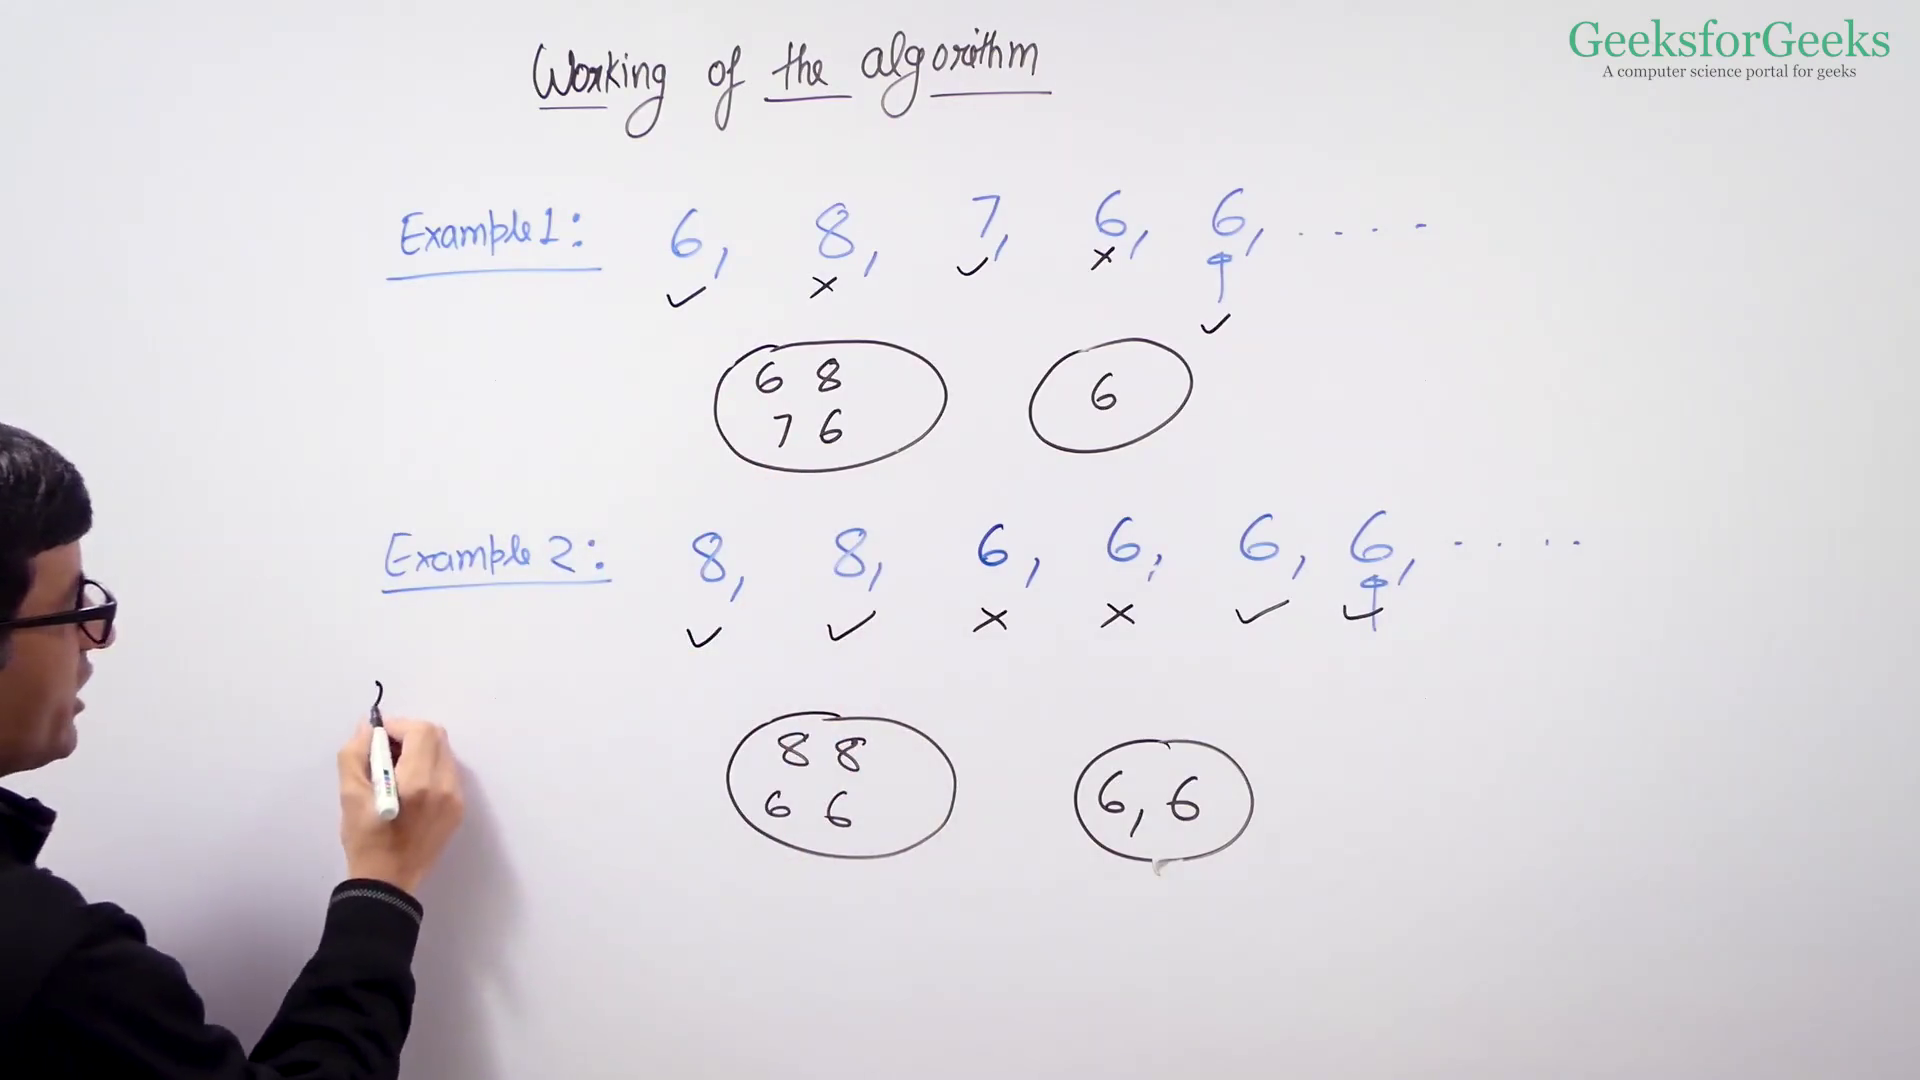 GeeksforGeeks
A computer science portal for geeks
Working of the algorithm
Example 1: 6, 8, 7, 6, 6, . . . .
✓ × ✓ × ✓
6 8
7 6
6
Example 2: 8, 8, 6, 6, 6, 6, . . . .
✓ ✓ × × ✓ ✓
8 8
6 6
6, 6